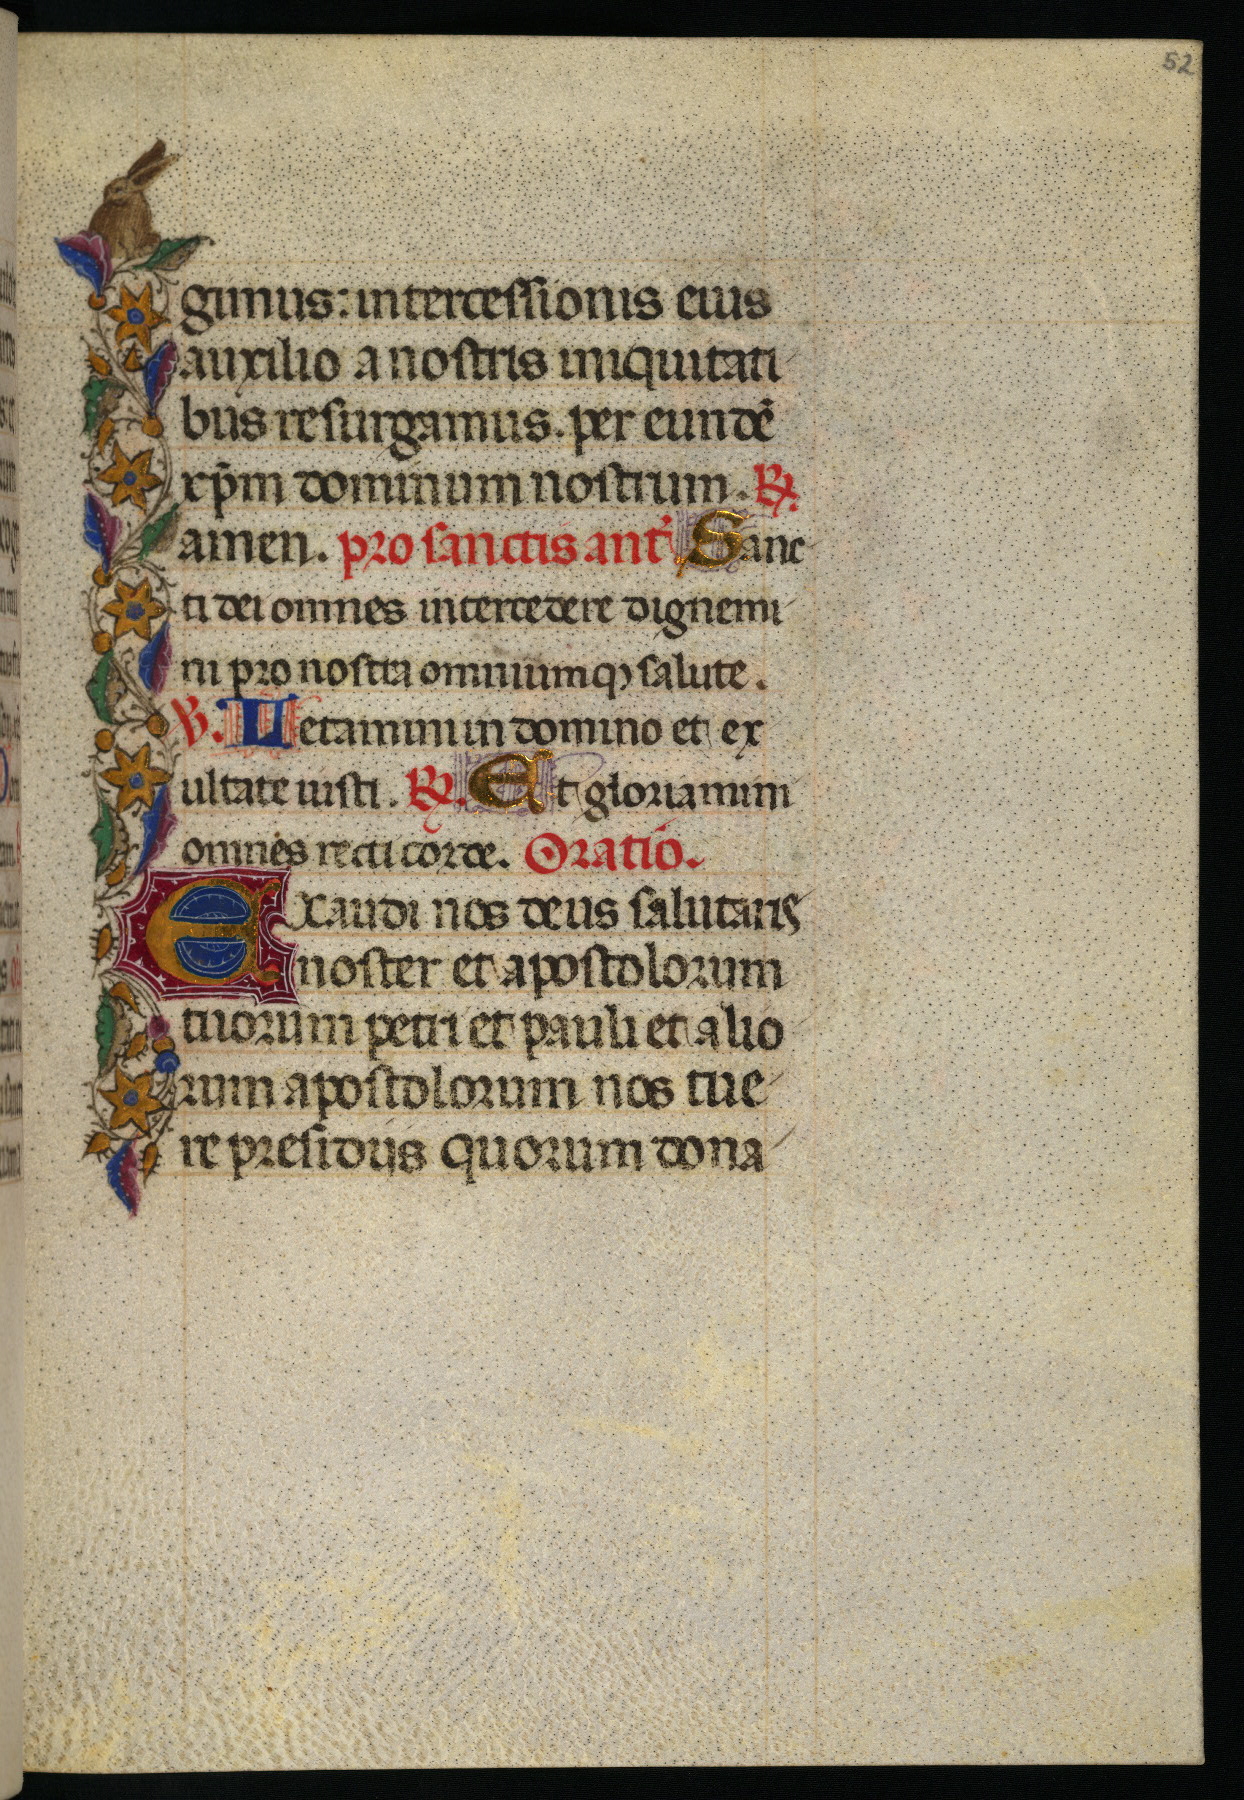 52
gimus: intercessionis eius
auxilio a nostris iniquitati
bus resurgamus. per eundē
xp̄m dominum nostrum. ℟.
amen. pro sanctis ant̄ Sanc
ti dei omnes intercedere dignemi
ni pro nostra omniumqꝫ salute.
℣. Letamini in domino et ex
ultate iusti. ℟. Et gloriamini
omnes recti corde. Oratiō.
Exaudi nos deus salutaris
noster et apostolorum
tuorum petri et pauli et alio
rum apostolorum nos tue
re presidijs quorum dona